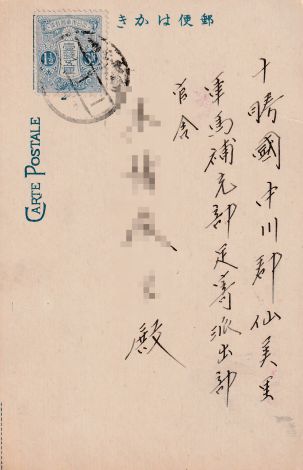 きかは便郵
十勝國中川郡仙美里
軍馬補充部足寄派出部
官舎
殿
CARTE POSTALE